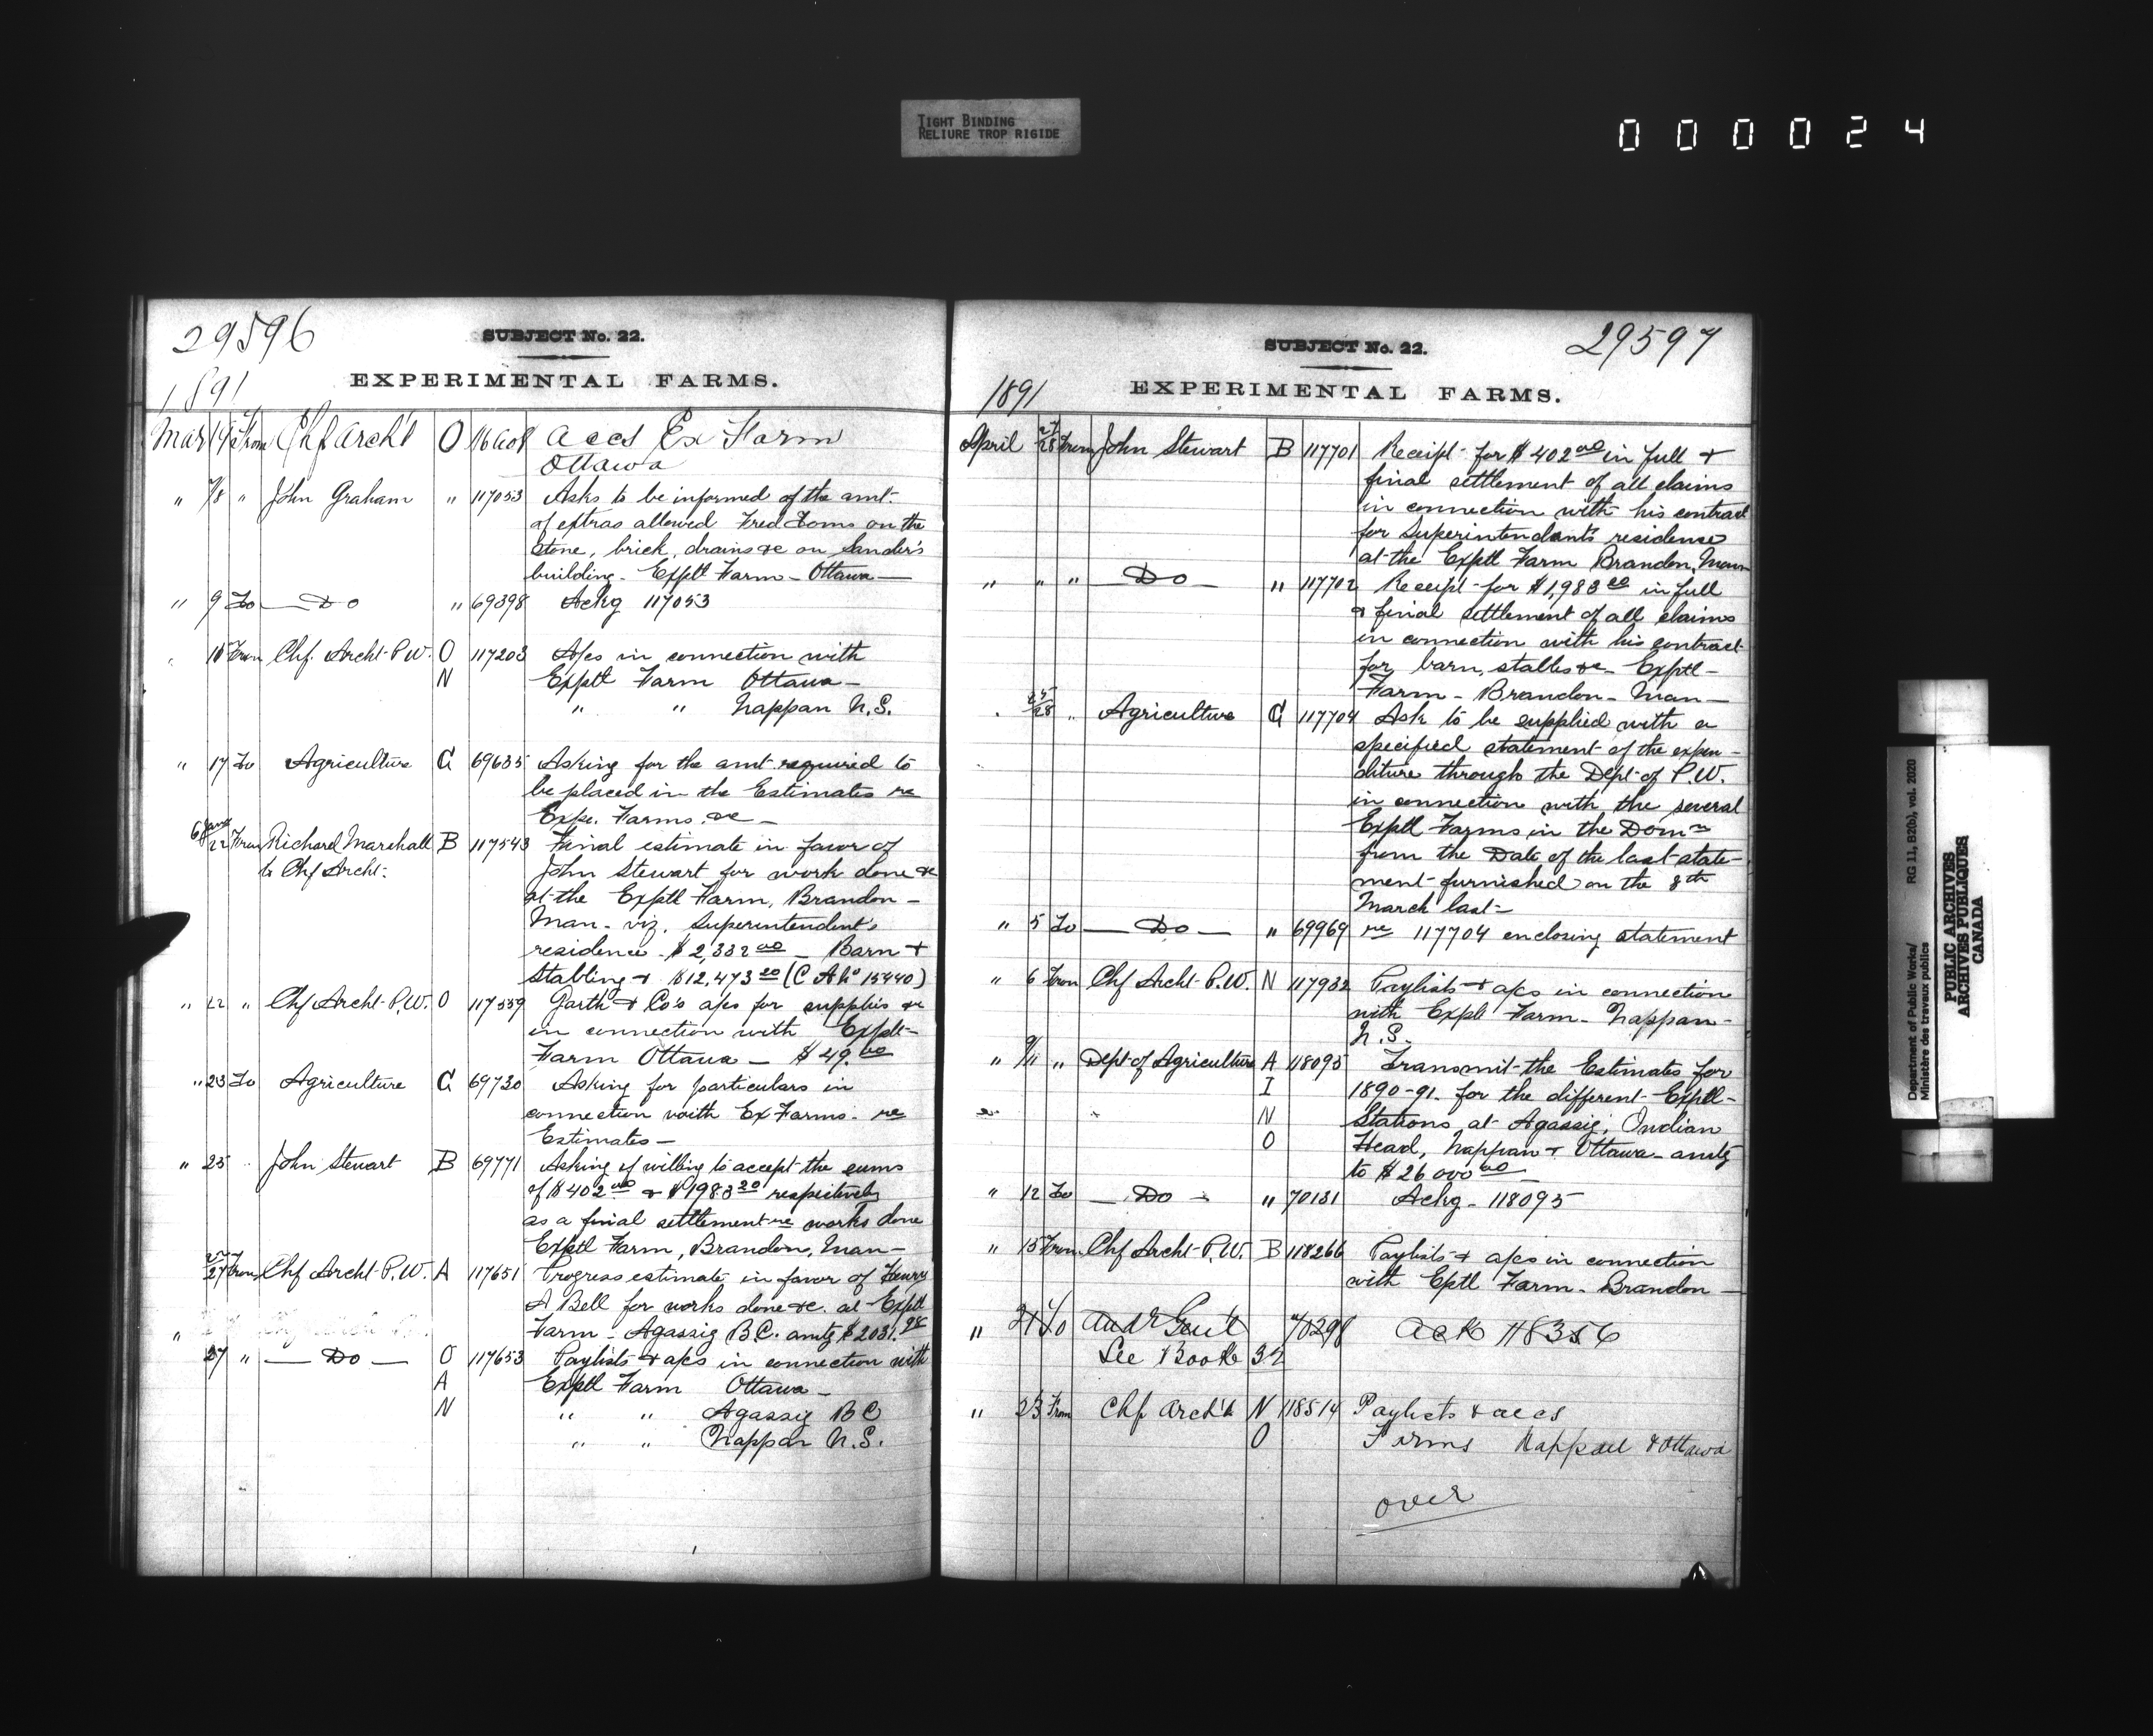 TIGHT BINDING
RELIURE TROP RIGIDE
000024
29596
SUBJECT No. 22.
1891
EXPERIMENTAL FARMS.
Mar 19 From Chf Archt O accs Ex Farm
Ottawa
" 7/8 " John Graham " 117053 Asks to be informed of the amt.
of extras allowed Fred Toms on the
stone, brick, drains &c on Sander's
building - Exptl Farm - Ottawa —
" 9 To — Do " 69398 Ackg 117053
" 10 From Chf. Archt - P.W. O 117203 A/cs in connection with
N Exptl Farm Ottawa -
" " Nappan N.S.
" 17 To Agriculture G 69635 Asking for the amt required to
be placed in the Estimates re
Expe. Farms. &c -
22 From Richard Marshall B 117543 Final estimate in favor of
to Chf Archt: John Stewart for work done &c
at the Exptl Farm, Brandon -
Man - viz. Superintendent's
residence - $2,332 00 - Barn +
Stabling + $12,473 20 (C A No 15440)
" 22 " Chf Archt - P.W. O 117559 Garth & Co's a/cs for supplies &c
in connection with Exptl -
Farm Ottawa - $49.00
" 23 To Agriculture G 69720 Asking for particulars in
connection with Ex Farms - re
Estimates -
" 25 John Stewart B 69771 Asking if willing to accept the sums
of $402 00 & $1983 20 respectively
as a final settlement re works done
Exptl Farm, Brandon, Man -
27 From Chf Archt - P.W. A 117651 Progress estimate in favor of Henry
A. Bell for works done &c. at Exptl
" Farm - Agassiz B.C. amtg $2031.98
27 " — Do — O 117653 Paylists & a/cs in connection with
A Exptl Farm Ottawa -
N " " Agassiz B C
" " Nappan N.S.
29597
SUBJECT No. 22.
1891
EXPERIMENTAL FARMS.
April 27/28 From John Stewart B 117701 Receipt for $402 00 in full +
final settlement of all claims
in connection with his contract
for Superintendants residence
at the Exptl Farm Brandon, Man
" " " — Do — " 117702 Receipt for $1,983 20 in full
& final settlement of all claims
in connection with his contract
for barn, stables &c - Exptl -
Farm - Brandon - Man -
25/28 " Agriculture G 117704 Ask to be supplied with a
specified statement of the expen-
diture through the Dept of P.W.
in connection with the several
Exptl Farms in the Domn
from the Date of the last state-
ment furnished on the 8th
March last -
" 5 To — Do — " 69969 re 117704 enclosing statement
" 6 From Chf Archt - P.W. N 117932 Paylists + a/cs in connection
with Exptl Farm - Nappan -
N.S.
" 9/11 " Dept of Agriculture A 118095 Transmit the Estimates for
I 1890-91. for the different Exptl -
N Stations at Agassiz, Indian
O Head, Nappan + Ottawa - amtg
to $26 000 00
" 12 To — Do — " 70131 Ackg - 118095
" 15 From Chf Archt - P.W. B 118266 Paylists + a/cs in connection
with Exptl Farm - Brandon -
" 21 To Audr Genl 70298 ack 118356
See Book 32
" 23 From Chf Archt N 118514 Paylists & accs
O Farms Nappan & Ottawa
over
Department of Public Works/
Ministère des travaux publics
RG 11, B2(b), vol. 2020
PUBLIC ARCHIVES
ARCHIVES PUBLIQUES
CANADA